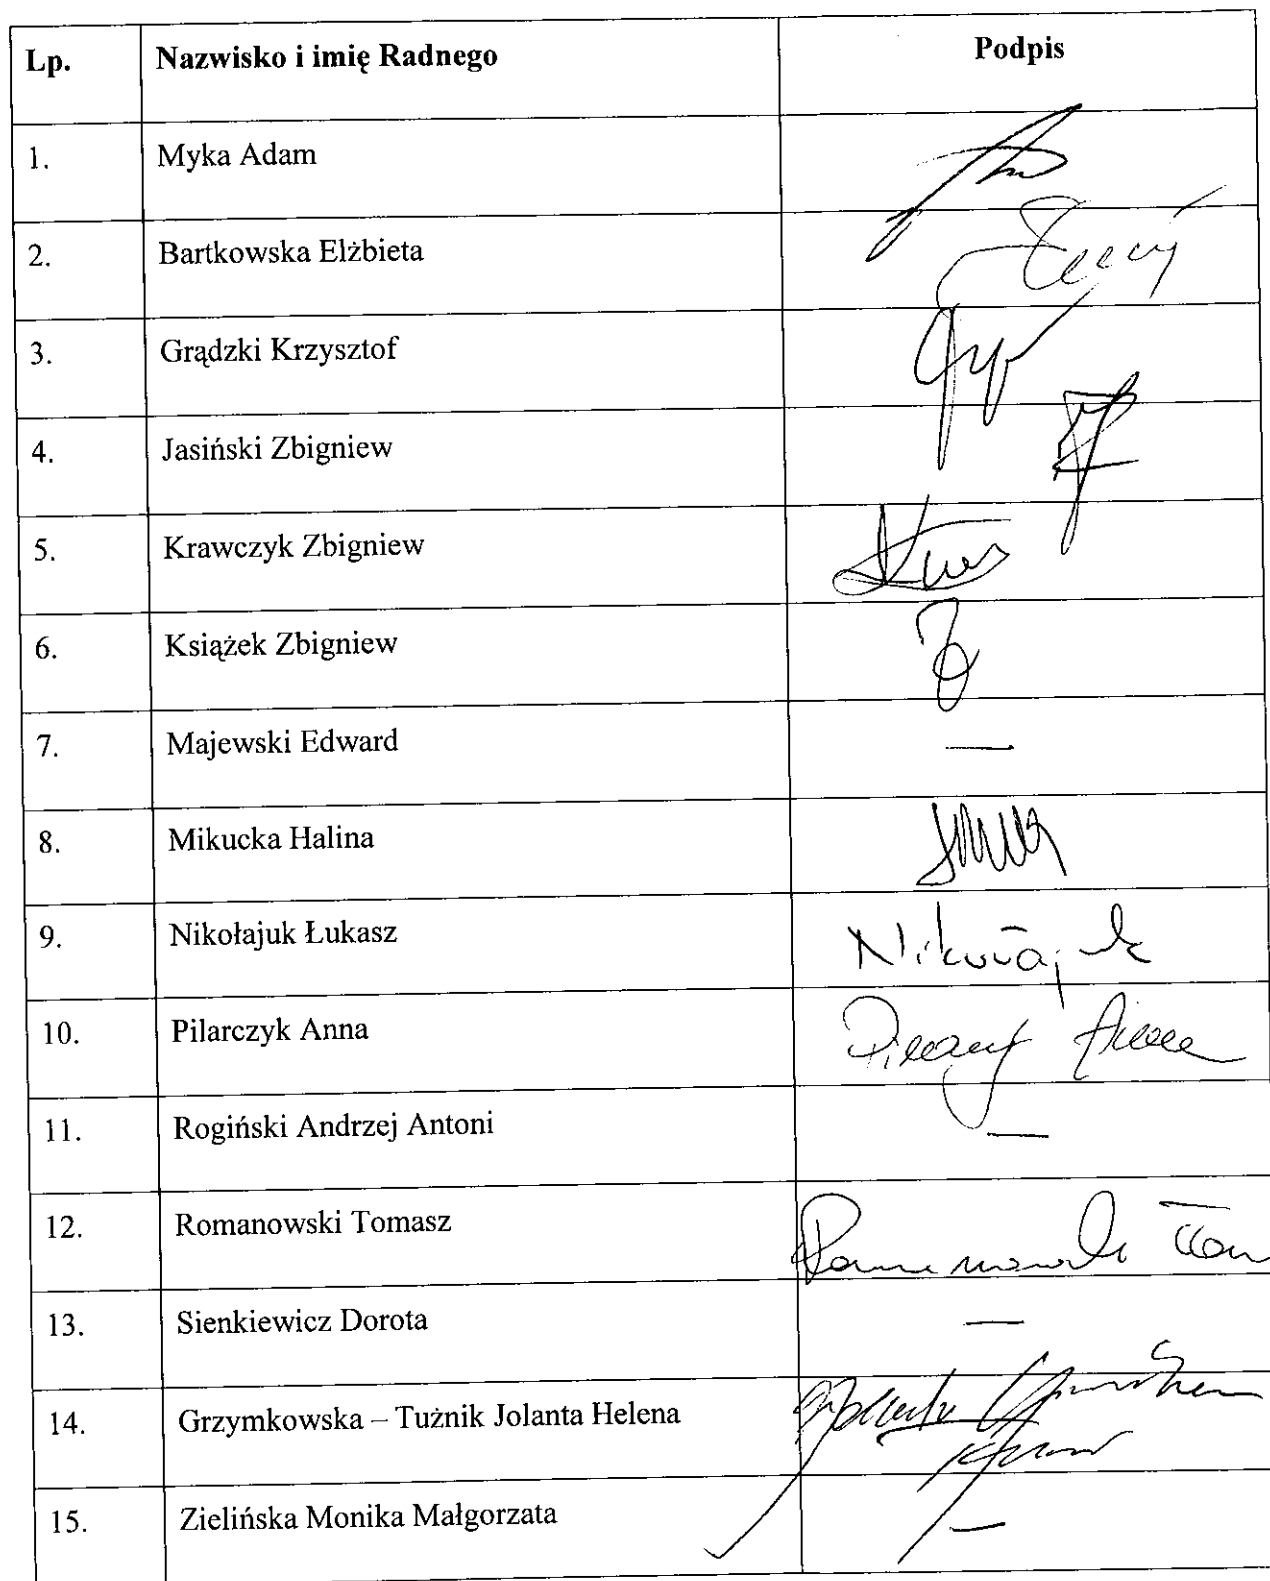 Lp. Nazwisko i imię Radnego Podpis
1. Myka Adam
2. Bartkowska Elżbieta
3. Grądzki Krzysztof
4. Jasiński Zbigniew
5. Krawczyk Zbigniew
6. Książek Zbigniew
7. Majewski Edward —
8. Mikucka Halina
9. Nikołajuk Łukasz Nikołajuk
10. Pilarczyk Anna
11. Rogiński Andrzej Antoni —
12. Romanowski Tomasz
13. Sienkiewicz Dorota —
14. Grzymkowska – Tużnik Jolanta Helena
15. Zielińska Monika Małgorzata —